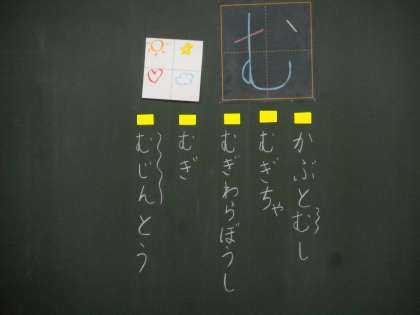 む
かぶとむし
むぎちゃ
むぎわらぼうし
むぎ
むじんとう